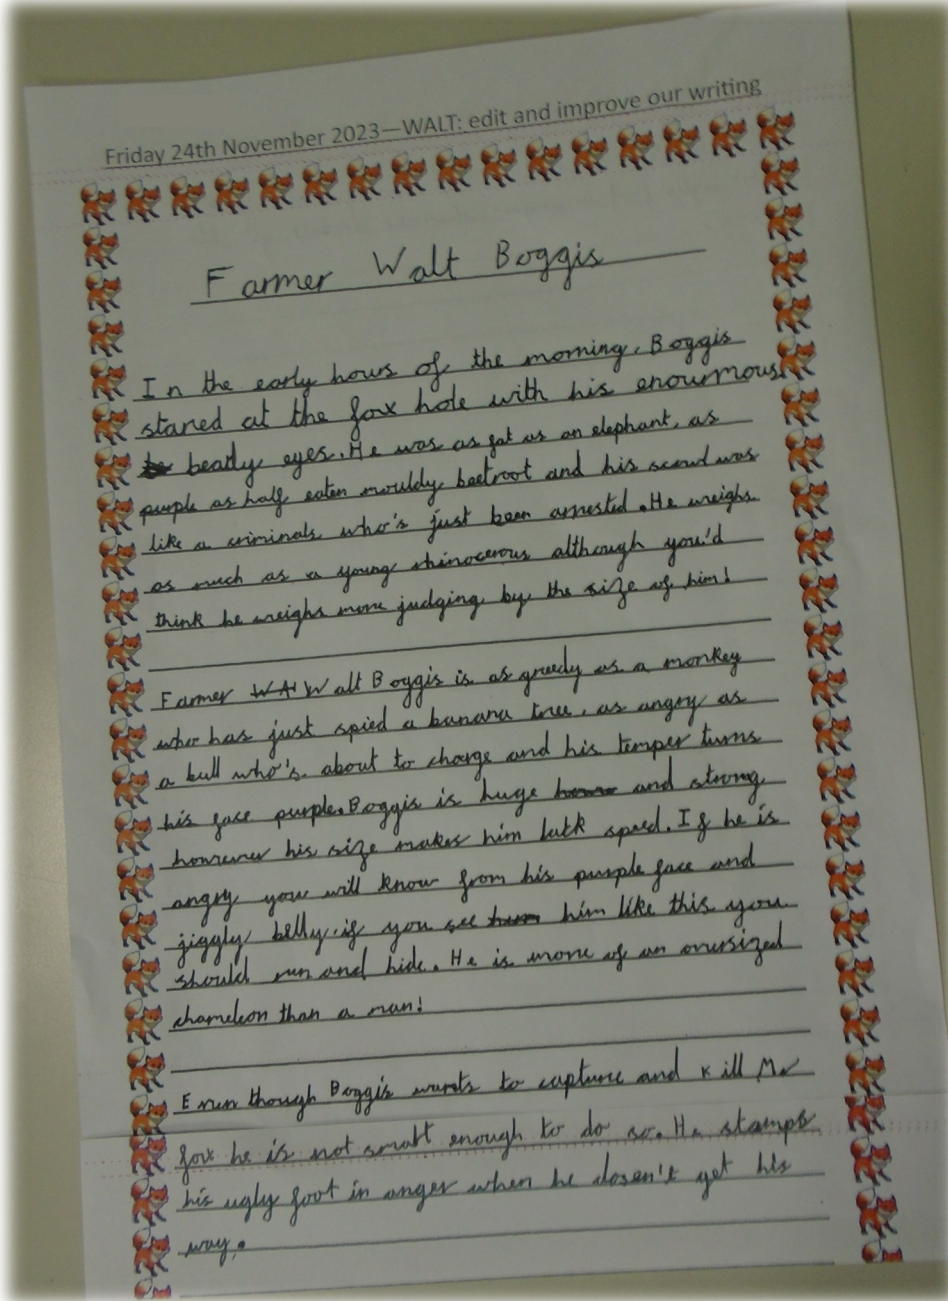 Friday 24th November 2023—WALT: edit and improve our writing
Farmer Walt Boggis
In the early hours of the morning, Boggis
stared at the fox hole with his enourmous
beatly eyes. He was as fat as an elephant, as
purple as half eaten mouldy beetroot and his scowl was
like a criminals who's just been arrested. He weighs
as much as a young rhinocerous although you'd
think he weighs more judging by the size of him!
Farmer Walt Boggis is as greedy as a monkey
who has just spied a banana tree, as angry as
a bull who's about to charge and his temper turns
his face purple. Boggis is huge and strong
however his size makes him lack speed. If he is
angry you will know from his purple face and
jiggly belly. if you see him like this you
should run and hide. He is more of an oversized
chameleon than a man!
Even though Boggis wants to capture and kill Mr
fox he is not smart enough to do so. He stamps
his ugly foot in anger when he dosen't get his
way.